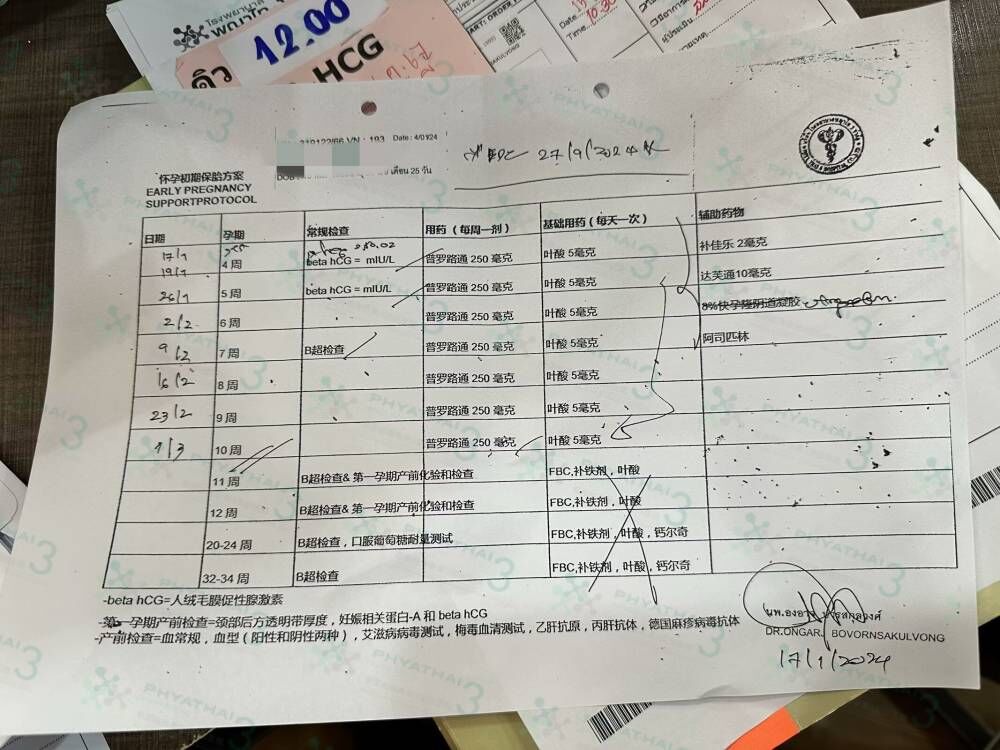 โรงพยาบาล
พญาไท
คิว
12.00
HCG
Date
Time
10.30
VN : 193 Date : 4/01/24
เดือน 25 วัน
EDC 27/9/2024
怀孕初期保胎方案
EARLY PREGNANCY
SUPPORTPROTOCOL
日期 孕期 常规检查 用药 （每周一剂） 基础用药（每天一次） 辅助药物
17/1
19/1 4 周 beta hCG = mIU/L 普罗路通 250 毫克 叶酸 5毫克 补佳乐 2毫克
26/1 5 周 beta hCG = mIU/L 普罗路通 250 毫克 叶酸 5毫克 达芙通10毫克
2/2 6 周 普罗路通 250 毫克 叶酸 5毫克 8%快孕隆阴道凝胶
9/2 7 周 B超检查 普罗路通 250 毫克 叶酸 5毫克 阿司匹林
16/2 8 周 普罗路通 250 毫克 叶酸 5毫克
23/2 9 周 普罗路通 250 毫克 叶酸 5毫克
1/3 10 周 普罗路通 250 毫克 叶酸 5毫克
11 周 B超检查& 第一孕期产前化验和检查 FBC,补铁剂，叶酸
12 周 B超检查& 第一孕期产前化验和检查 FBC,补铁剂，叶酸
20-24 周 B超检查，口服葡萄糖耐量测试 FBC,补铁剂，叶酸，钙尔奇
32-34 周 B超检查 FBC,补铁剂，叶酸，钙尔奇
-beta hCG=人绒毛膜促性腺激素
-第一孕期产前检查=颈部后方透明带厚度，妊娠相关蛋白-A 和 beta hCG
-产前检查=血常规，血型（阳性和阴性两种），艾滋病病毒测试，梅毒血清测试，乙肝抗原，丙肝抗体，德国麻疹病毒抗体
DR.ONGARJ BOVORNSAKULVONG
17/1/2024
PHYATHAI 3